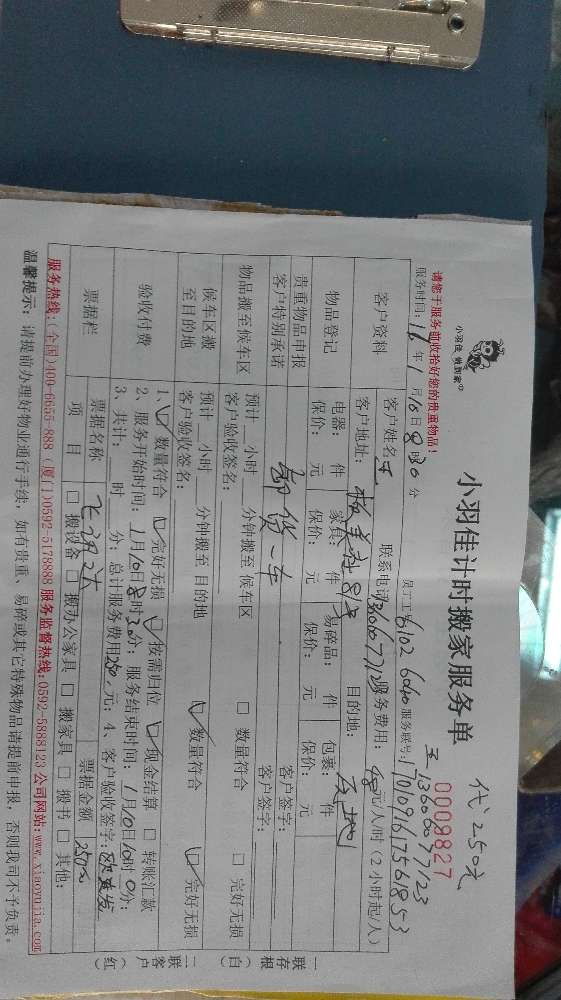 小羽佳计时搬家服务单
代250元
小羽佳 懒羽家
0008827
请您于服务前收拾好您的贵重物品!
王 13606077123
服务时间: 年1月10日8时30分 员工工号6102 6040 服务联号:1701091617561853
客户资料 客户姓名 王 联系电话13606077123 服务费用: 元/人/时(2小时起/人)
客户地址: 目的地:
物品登记 电器: 件 家具: 件 易碎品: 件 包裹: 件
保价: 元 保价: 元 保价: 元 保价: 元
贵重物品申报 卸货一车 客户签字:
客户特别承诺 客户签字:
物品搬至候车区 预计 小时 分钟搬至候车区 □ 数量符合 □ 完好无损
客户验收签名:
候车区搬至目的地 预计 小时 分钟搬至目的地 ☑ 数量符合 ☑ 完好无损
客户验收签名:
验收付费 1、☑ 数量符合 ☑ 完好无损 ☑ 按需归位 ☑ 现金结算 □ 转账汇款
2、服务开始时间:1月10日8时30分;服务结束时间:1月10日10时0分;
3、共计: 时 分;总计服务费用250元;4、客户验收签字:
票据栏 票据名称 票据金额 250元
项 目 □ 搬设备 □ 搬办公家具 □ 搬家具 □ 搬书 □ 其他:
一联存根(白) 二联客户(红
服务热线:(全国)400-6655-888 (厦门)0592-5178888 服务监督热线:0592-5888123 公司网站:www.xiaoyujia.com
温馨提示:请提前办理好物业通行手续,如有贵重、易碎或其它特殊物品请提前申报,否则我司不予负责。